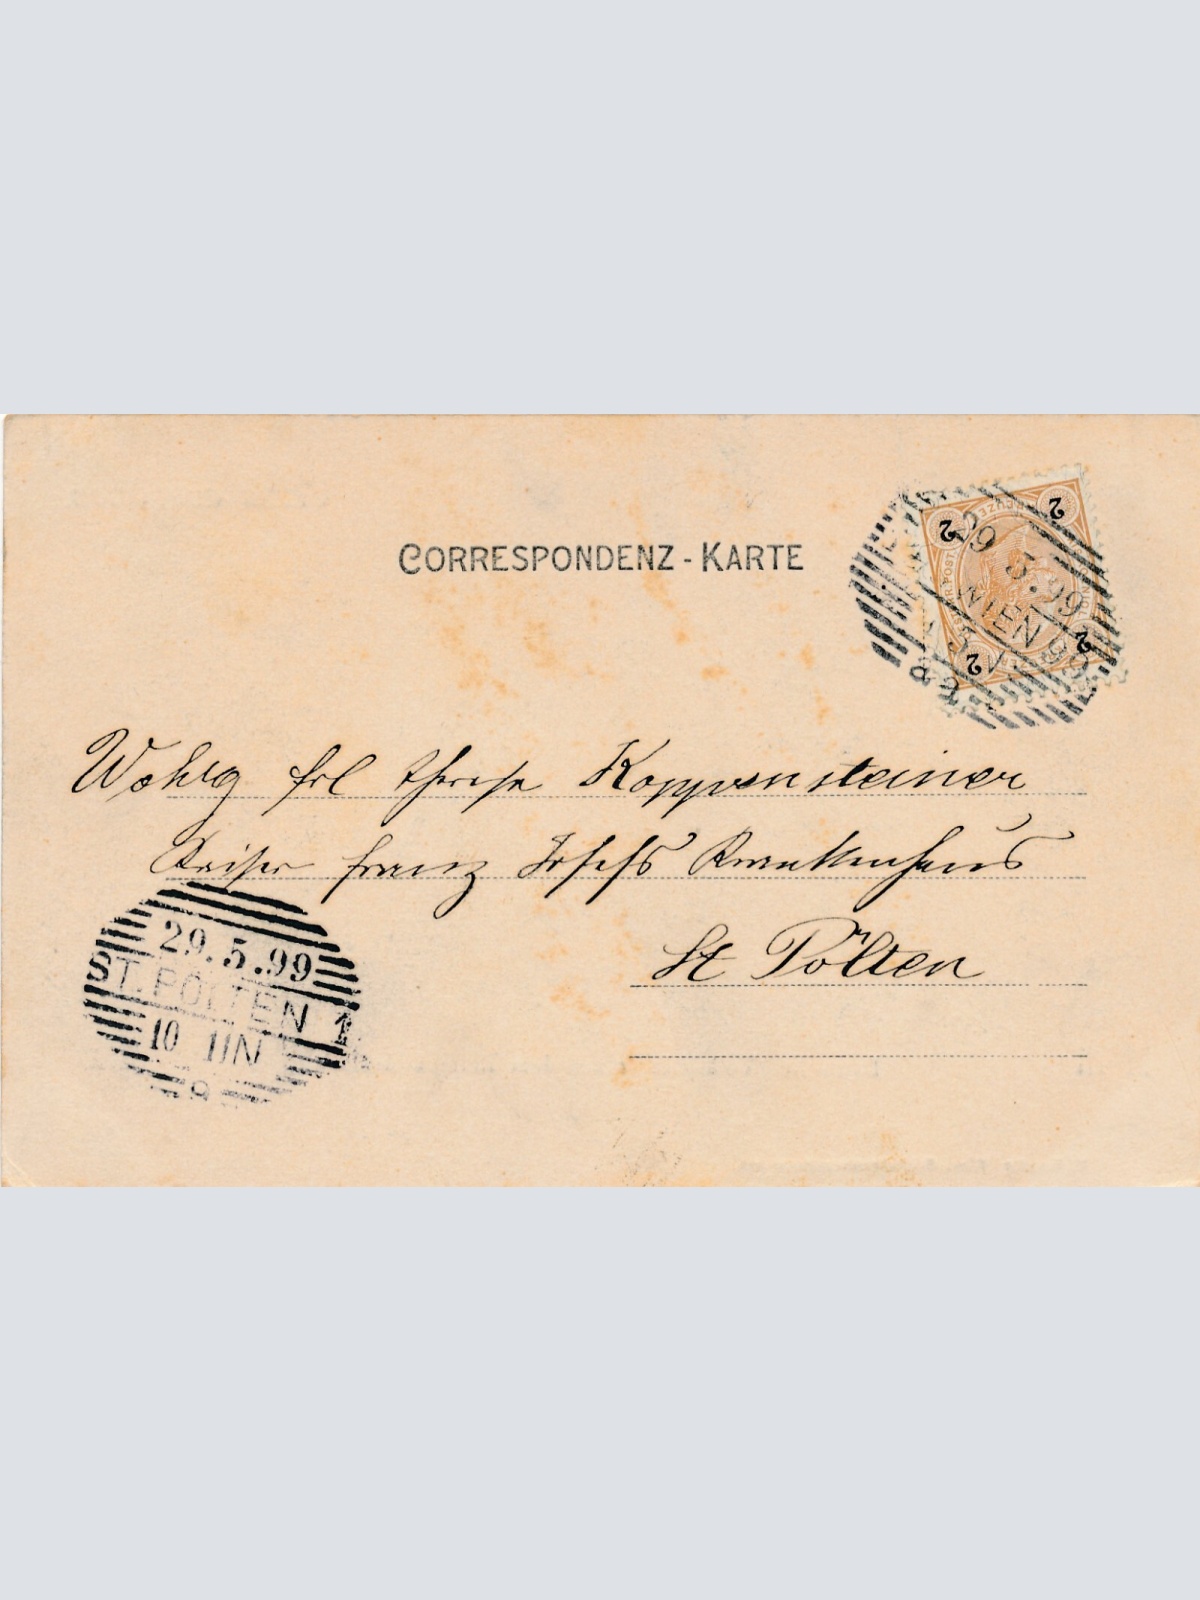 CORRESPONDENZ-KARTE
2 2 2 2
KREUZER
29 5.99
WIEN
Wohlg Frl Therese Koppensteiner
Kaiser Franz Josefs Krankenhaus
St Pölten
29.5.99
ST. PÖLTEN 1
10